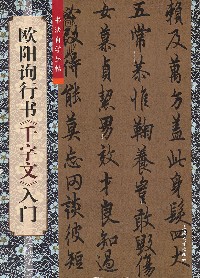 书法自学丛帖
欧阳询行书《千字文》入门
賴及萬方盖此身髮四大
五常恭惟鞠養豈敢毀
傷女慕貞絜男效才良知過
必改得能莫忘罔談彼短